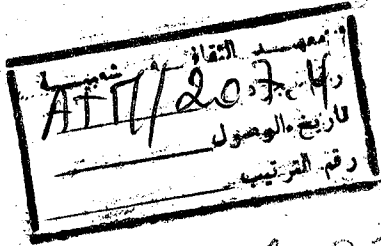 معهد الثقافة الشعبية
ATП/2074
تاريخ الوصول
رقم الترتيب